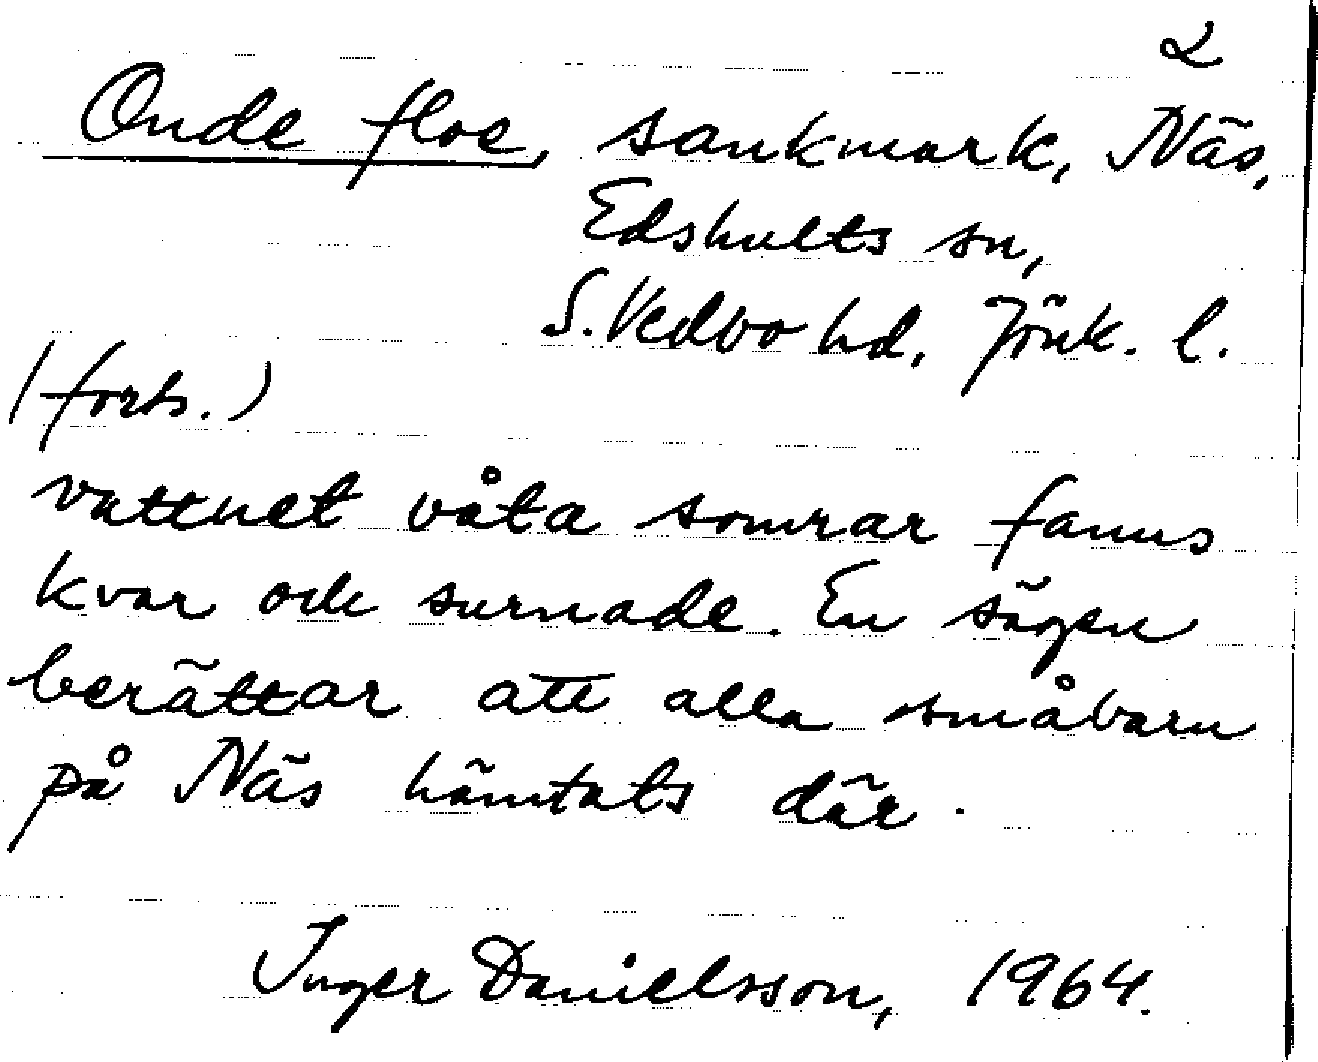 2
Onde floe, sankmark, Näs,
Edshults sn,
S. Vedbo hd, Jönk. l.
(forts.)
vattnet våta somrar fanns
kvar och surnade. En sägen
berättar att alla småbarn
på Näs hämtats där.
Inger Danielsson, 1964.